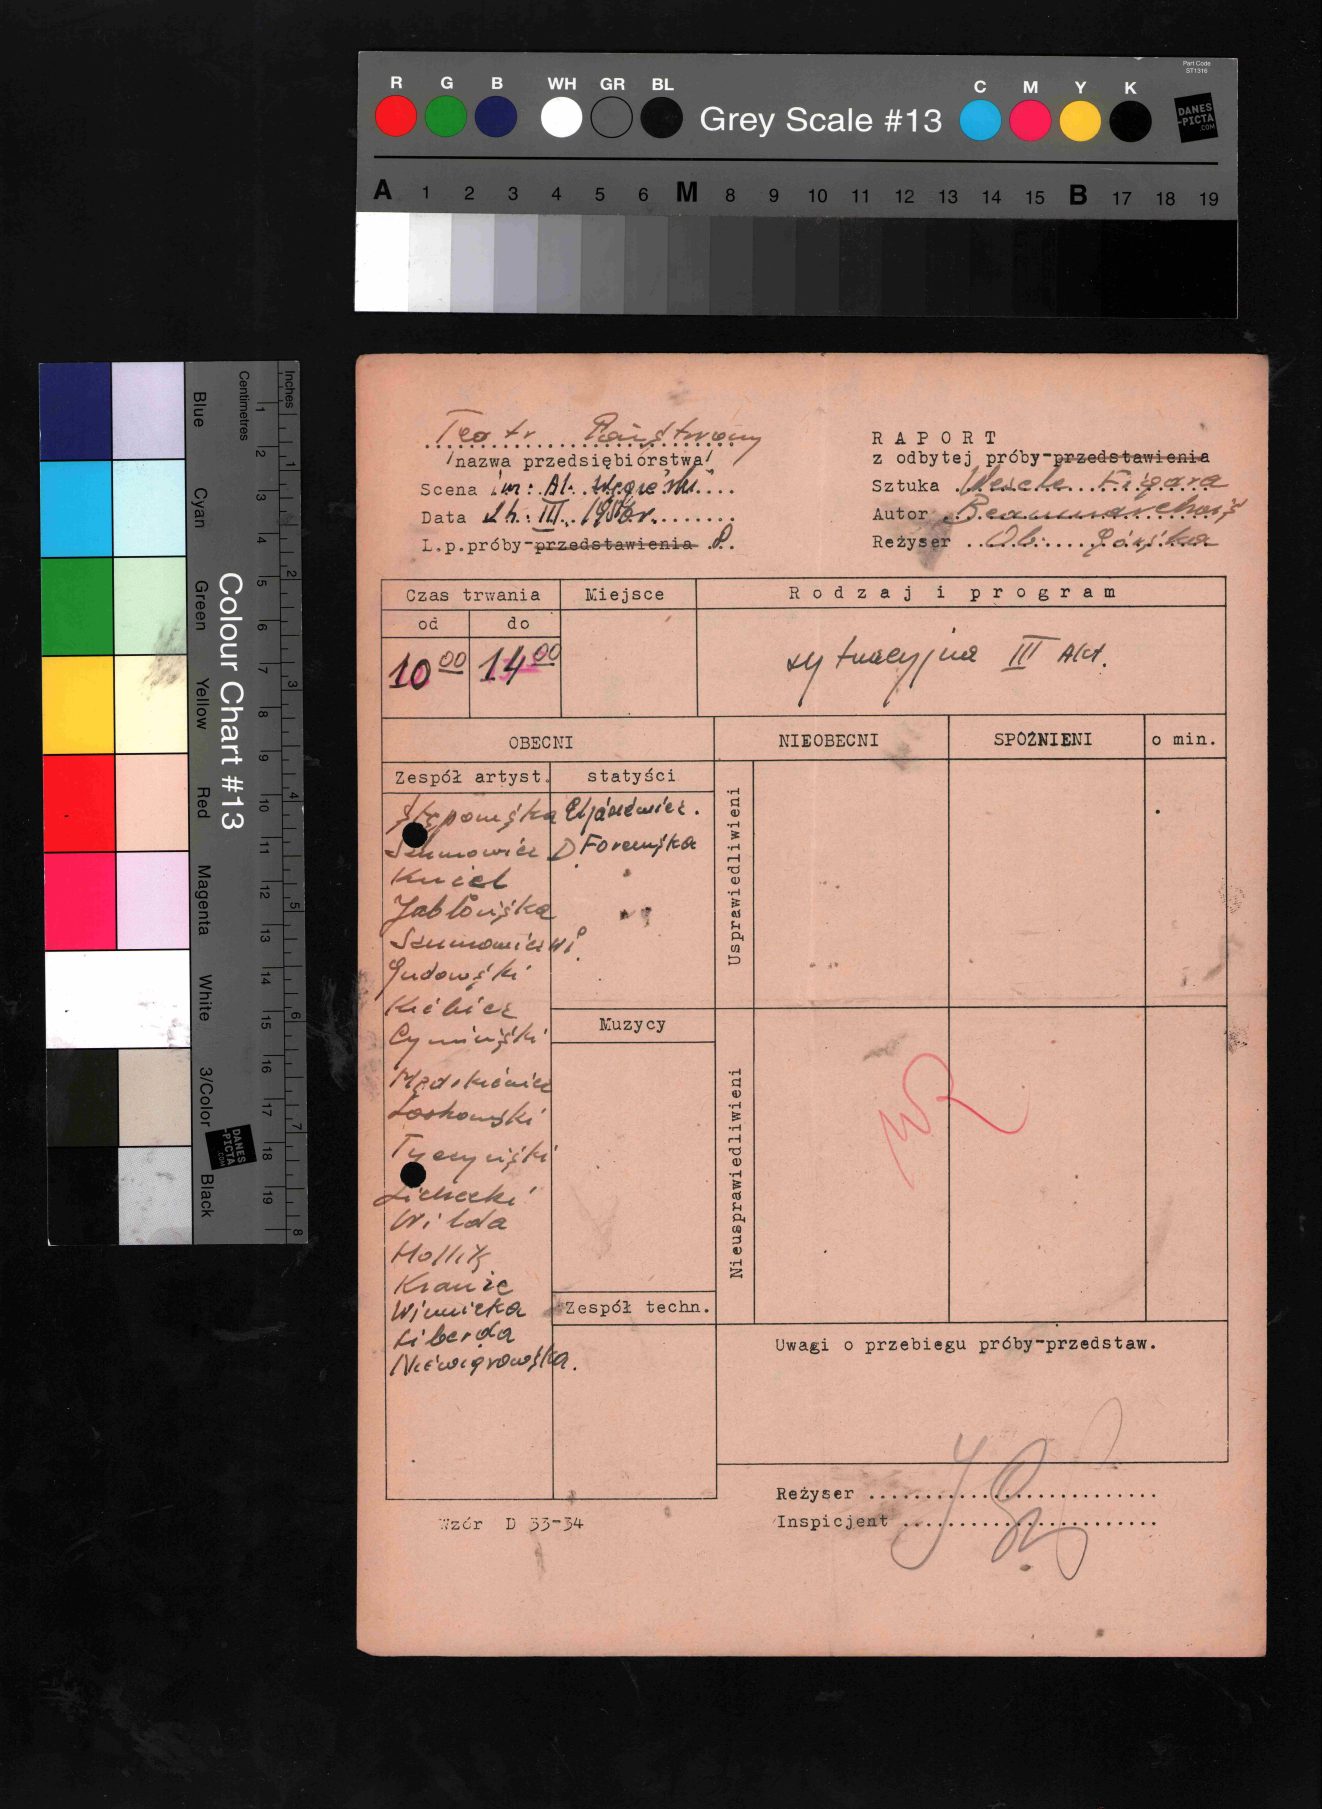 Part Code
ST1316
R G B WH GR BL Grey Scale #13 C M Y K
DANES
-PICTA
.COM
A 1 2 3 4 5 6 M 8 9 10 11 12 13 14 15 B 17 18 19
Colour Chart #13
Blue Cyan Green Yellow Red Magenta White 3/Color Black
Centimetres 1 2 3 4 5 6 7 8 9 10 11 12 13 14 15 16 17 18 19
Inches 1 2 3 4 5 6 7 8
DANES
-PICTA
.COM
Teatr Państwowy
/nazwa przedsiębiorstwa/
Scena im: Al. Węgierki
Data III. 1956r.
L.p.próby-przedstawienia
RAPORT
z odbytej próby-przedstawienia
Sztuka Wesele Figara
Autor Beaumarchais
Reżyser Ob. Górska
Czas trwania Miejsce Rodzaj i program
od do
10 00 14 00 sytuacyjna III Akt.
OBECNI NIEOBECNI SPÓŹNIENI o min.
Zespół artyst. statyści
Usprawiedliwieni
Stępowska
Szumowicz D Foremska
Kniol
Jabłońska
Szumowicz Wł.
Gudowski
Kiebicz
Cymiński
Mędrkiewicz
Laskowski
Tyczyński
Lichecki
Wilda
Kranze
Winnicka
Liberda
Niewiarowska.
Muzycy
Nieusprawiedliwieni
Zespół techn.
Uwagi o przebiegu próby-przedstaw.
Reżyser
Inspicjent
Wzór D 33-34